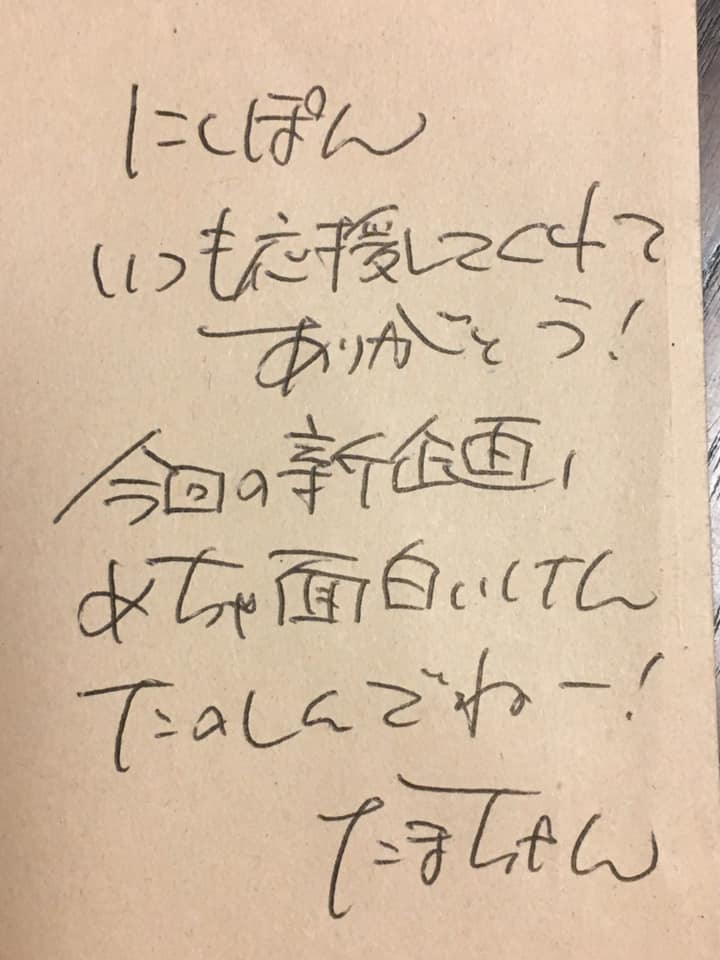 にくぽん
いつも応援してくれて
ありがとう!
今回の新企画、
めちゃ面白いけん
たのしんでねー!
たまちゃん